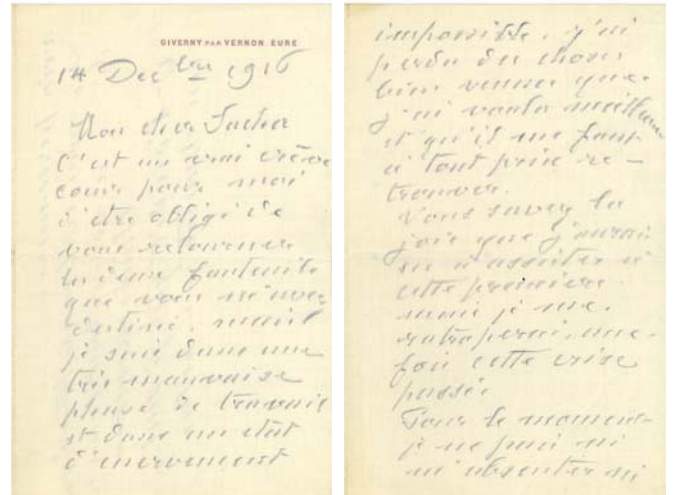 GIVERNY PAR VERNON EURE
14 Dec bre 1916
Mon cher Sacha
C'est un vrai crève
cœur pour moi
d'être obligé de
vous retourner
les deux fauteuils
que vous m'avez
destiné. mais
je suis dans une
très mauvaise
phase de travail
et dans un état
d'enervement
impossible. j'ai
perdu des choses
bien venues que
j'ai voulu meilleures
et qu'il me faut
à tout prix re-
trouver.
Vous savez la
joie que j'aurais
eu à assister à
cette première.
mais je me
rattraperai, une
fois cette crise
passée
Pour le moment
je ne puis ni
m'absenter ni